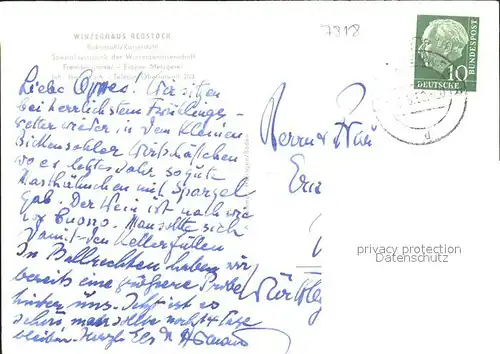 WINZERHAUS REBSTOCK
Spezialausschank der Winzergenossenschaft
Fremdenzimmer - Eigene Metzgerei
7318
DEUTSCHE
BUNDESPOST
10
Liebe Wir sitzen
bei herrlichstem Frühlings-
wetter wieder in dem kleinen
Bickensohler Wirtschäftchen
wo es letztes Jahr so gute
Masthähnchen mit Spargel
gab. Der Wein ist nach wie
vor buono. Man sollte sich
damit den Keller füllen
In Ballrechten haben wir
bereits eine größere Probe
hinter uns. Jetzt ist es
schön, man sollte noch 14 Tage
bleiben. Herzlichst
Herrn u Frau
privacy protection
Datenschutz